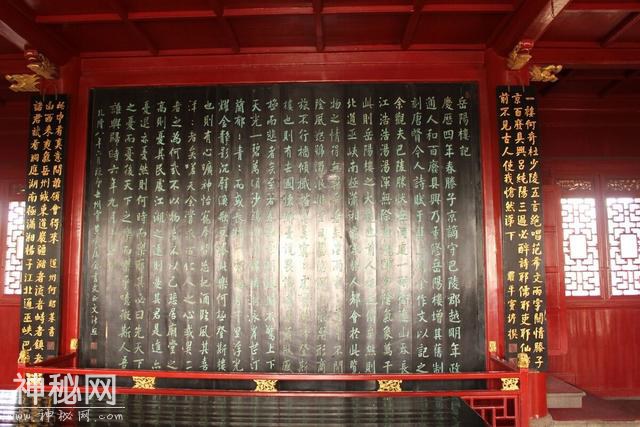 一樓何奇杜少陵五言絕唱范希文兩字關情滕子
京百廢具興呂純陽三過必醉詩耶儒耶吏耶仙耶
前不見古人使我愴然淚下
岳陽樓記
慶曆四年春滕子京謫守巴陵郡越明年政
通人和百廢具興乃重修岳陽樓增其舊制
刻唐賢今人詩賦于其上屬予作文以記之
余觀夫巴陵勝狀在洞庭一湖銜遠山吞長
江浩浩湯湯渾無際涯朝暉夕陰氣象萬千
此則岳陽樓之大觀也前人之述備矣然則
北通巫峽南極瀟湘遷客騷人多會於此覽
物之情得無異乎若夫霪雨霏霏連月不開
陰風怒號濁浪排空日星隱曜山岳潛形商
旅不行檣傾楫摧薄暮冥冥虎嘯猿啼登斯
樓也則有去國懷鄉憂讒畏譏滿目蕭然感
極而悲者矣至若春和景明波瀾不驚上下
天光一碧萬頃沙鷗翔集錦鱗游泳岸芷汀
蘭郁郁青青而或長煙一空皓月千里浮光
耀金靜影沉璧漁歌互答此樂何極登斯樓
也則有心曠神怡寵辱皆忘把酒臨風其喜
洋洋者矣嗟夫予嘗求古仁人之心或異二
者之為何哉不以物喜不以己悲居廟堂之
高則憂其民處江湖之遠則憂其君是進亦
憂退亦憂然則何時而樂耶其必曰先天下
之憂而憂後天下之樂而樂乎噫微斯人吾
誰與歸時六年九月
諸君試看洞庭湖南極瀟湘揚子江北通巫峽巴陵
山西來爽氣岳州城東道巖疆瀦者流者峙者鎮者
此中有真意問誰領會得來
道州何紹基書
神秘网
www.神秘网.com